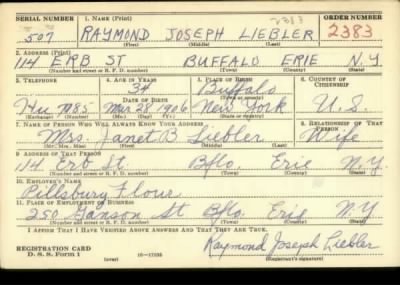 2383
SERIAL NUMBER 1. NAME (Print) ORDER NUMBER
507 RAYMOND JOSEPH LIEBLER 2383
(First) (Middle) (Last)
2. ADDRESS (Print)
114 ERB ST BUFFALO ERIE N.Y.
(Number and street or R. F. D. number) (Town) (County) (State)
3. TELEPHONE 4. AGE IN YEARS 5. PLACE OF BIRTH 6. COUNTRY OF CITIZENSHIP
34 Buffalo
DATE OF BIRTH (Town or county)
7185 Mar 1906 New York U.S.
(Exchange) (Number) (Mo.) (Day) (Yr.) (State or country)
7. NAME OF PERSON WHO WILL ALWAYS KNOW YOUR ADDRESS 8. RELATIONSHIP OF THAT PERSON
Mrs. Janet B. Liebler Wife
(Mr., Mrs., Miss) (First) (Middle) (Last)
9. ADDRESS OF THAT PERSON
114 Erb St. Bflo. Erie N.Y.
(Number and street or R. F. D. number) (Town) (County) (State)
10. EMPLOYER'S NAME
Pillsbury Flour
11. PLACE OF EMPLOYMENT OR BUSINESS
250 Ganson St Bflo. Erie N.Y.
(Number and street or R. F. D. number) (Town) (County) (State)
I AFFIRM THAT I HAVE VERIFIED ABOVE ANSWERS AND THAT THEY ARE TRUE.
REGISTRATION CARD Raymond Joseph Liebler
D. S. S. Form 1 (over) 16-17105 (Registrant's signature)